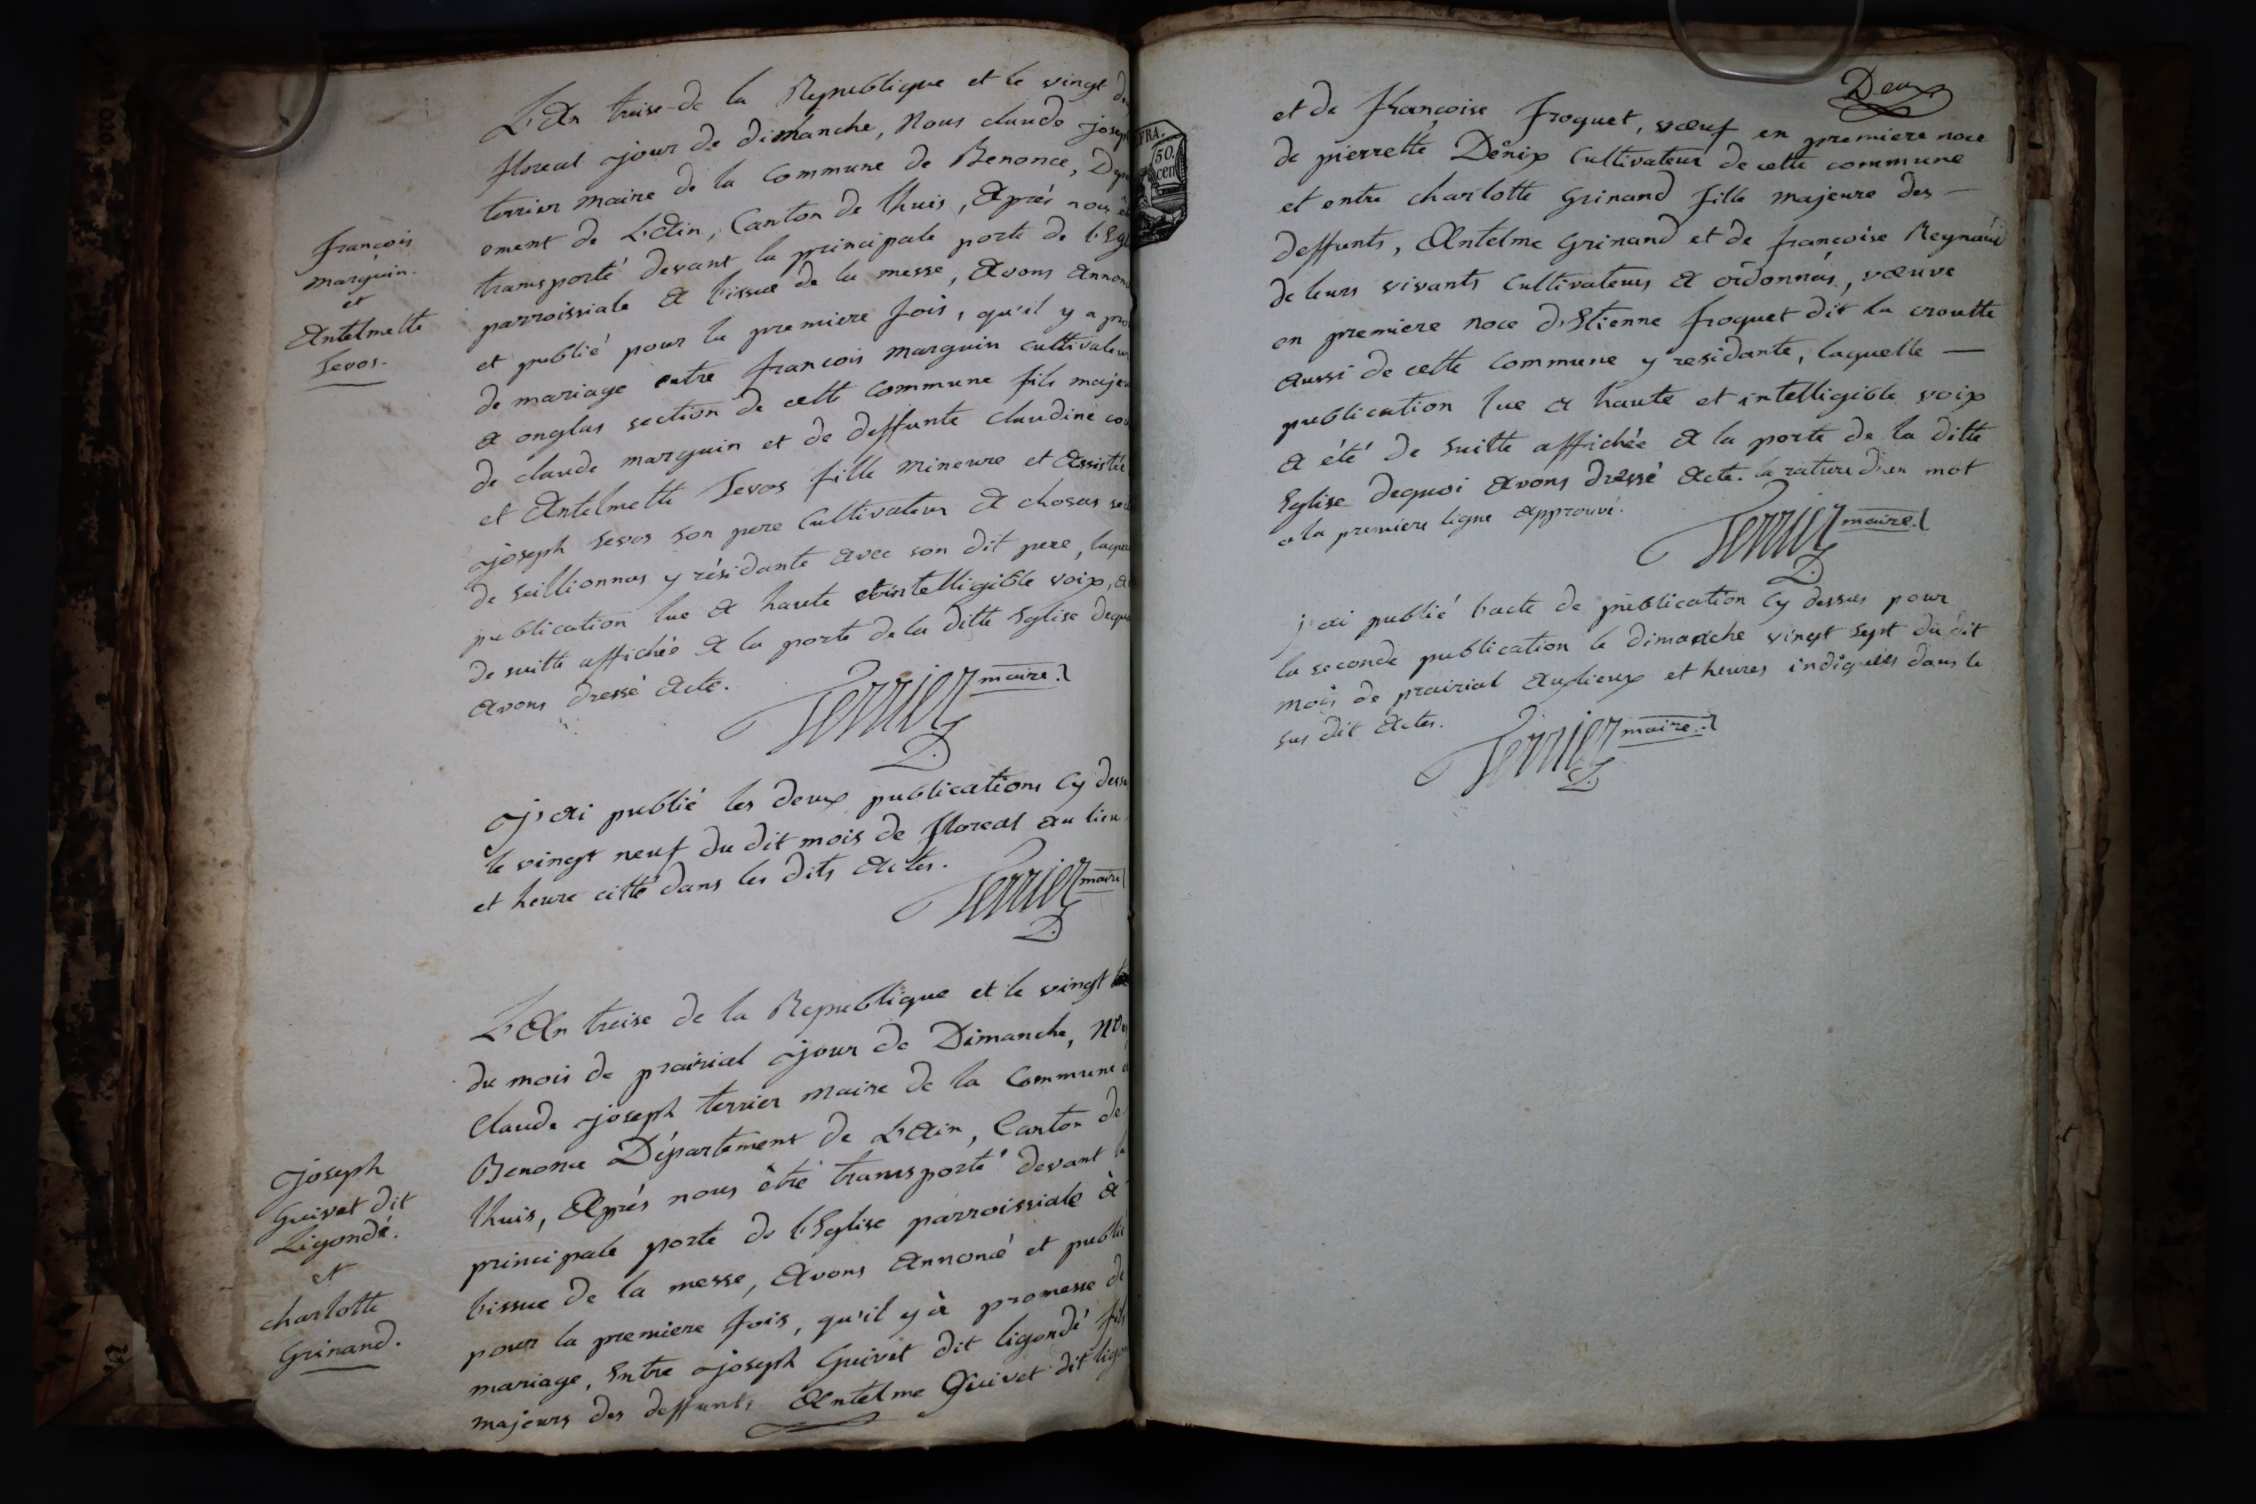 L'An treise de la Republique et le vingt
floreal jour de dimanche, Nous claude joseph
terrier maire de la Commune de Benonce,
ement de L'Ain, Canton de lhuis, Après nous
transporté devant la principale porte de l'Egl
parroissiale A l'issue de la messe, Avons Annon
et publié pour la premiere fois, qu'il y a pro
de mariage entre françois marguin cultivateur
A onglas section de cette Commune fils majeu
de claude marguin et de deffunte claudine
et Antelmette Tevos fille mineure et Assistée
joseph tevos son pere Cultivateur A choses
de seillionnas y résidante avec son dit pere, laque
publication lue A haute et intelligible voix,
de suitte affichée A la porte de la ditte Eglise dequ
Avons dressé Acte.
Terrier maire
françois
marguin.
et
Antelmette
Tevos.
j'ai publié les deux publications Cy dess
le vingt neuf du dit mois de floreal Au lieu
et heure citté dans les dits Actes.
Terrier maire
L'An treise de la Republique et le vingt
du mois de prairial jour de Dimanche, No
Claude joseph terrier maire de la Commune
Benonce Département de L'Ain, Canton de
lhuis, Après nous être transporté devant la
principale porte de l'Eglise parroissiale à
l'issue de la messe, Avons Annoncé et publié
pour la premiere fois, qu'il y à promesse de
mariage, Entre joseph Guivet dit ligondé fils
majeurs des deffunts Antelme Guivet dit ligon
joseph
Guivet dit
Ligondé.
et
charlotte
Grinand.
Deux
FRA.
50.
cen
et de françoise froquet, vœuf en premiere noce
de pierrette Dénix Cultivateur de cette commune
et entre charlotte Grinand fille majeure des
deffunts, Antelme Grinand et de francoise Reynaud
de leurs vivants Cultivateurs A ordonnas, vœuve
en premiere noce d'Etienne froquet dit la croutte
aussi de cette Commune y residante, laquelle
publication lue A haute et intelligible voix
A été de suitte affichée A la porte de la ditte
Eglise dequoi Avons dressé Acte. la rature d'un mot
a la premiere ligne approuvé.
Terrier maire
j'ai publié l'acte de publication Cy dessus pour
la seconde publication le dimanche vingt sept du dit
mois de prairial Aux lieux et heures indiquées dans le
sus dit Actes.
Terrier maire